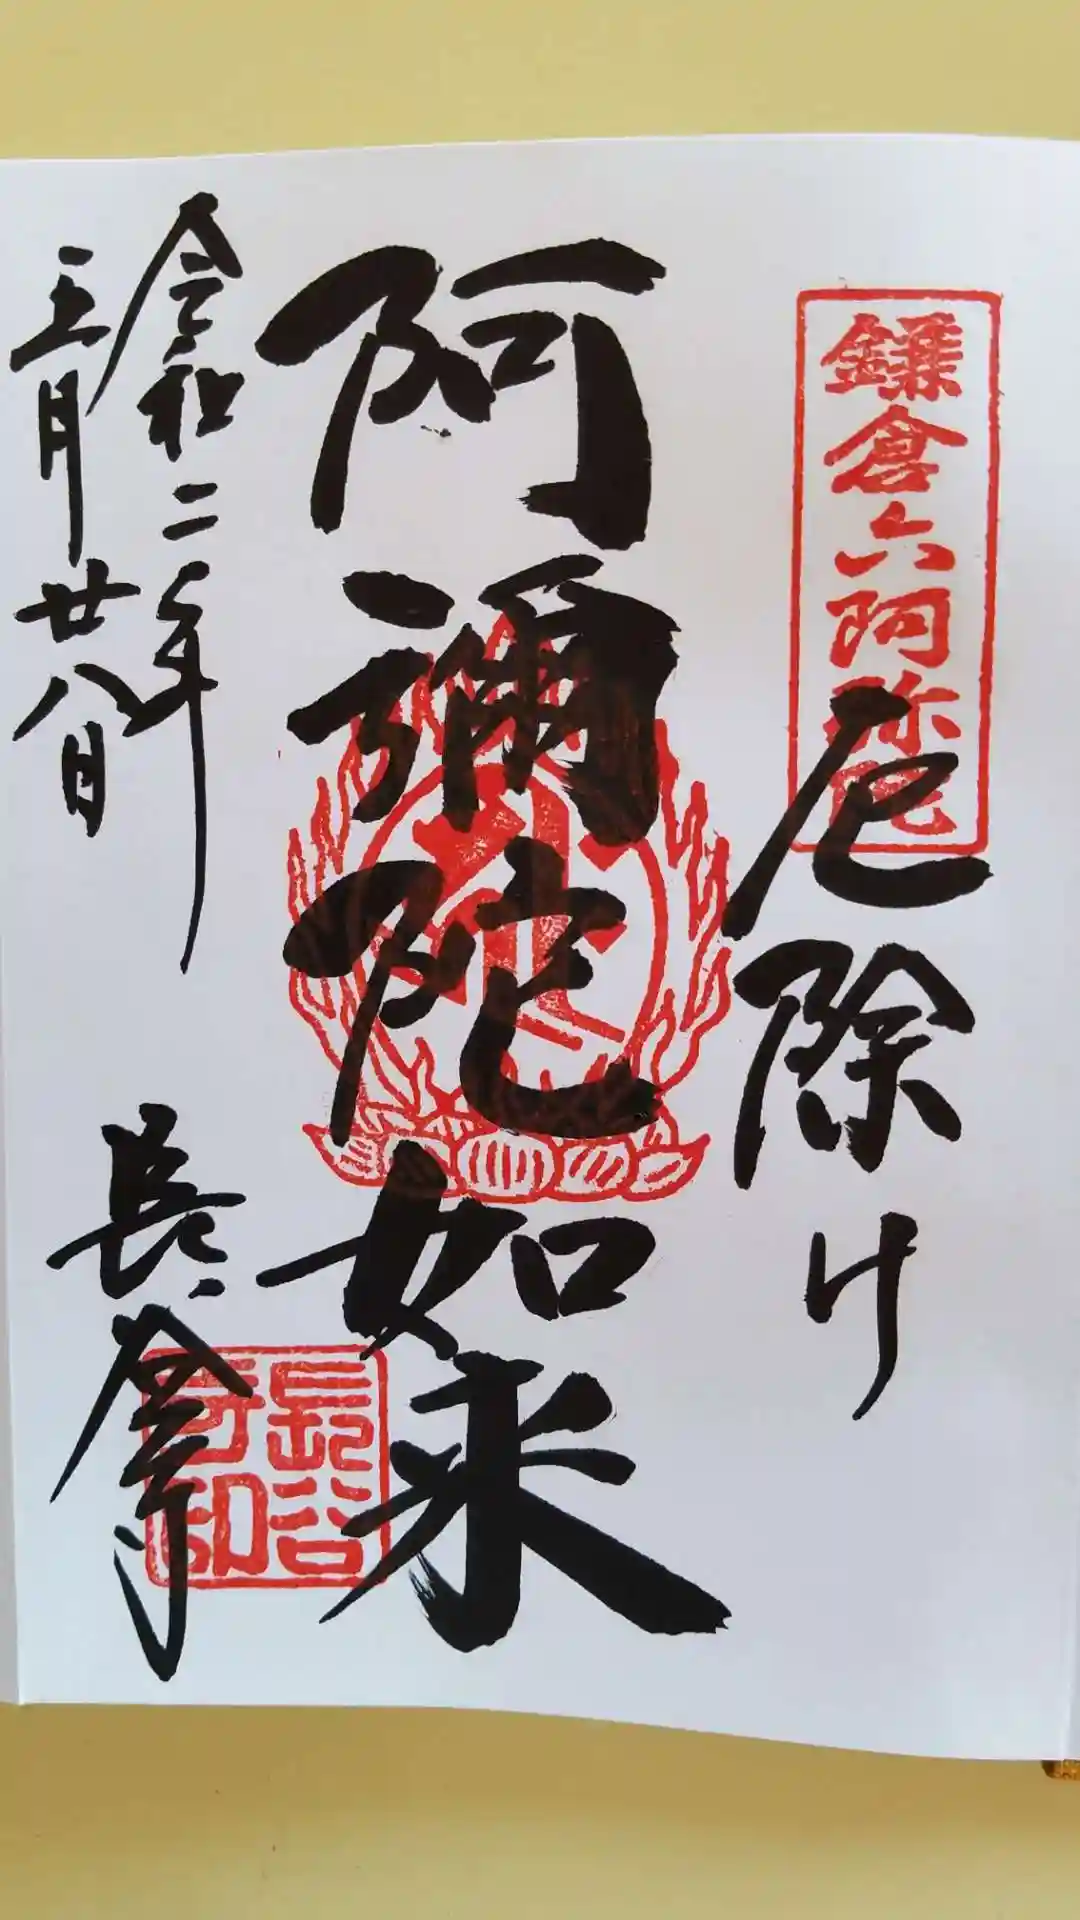 鎌倉六阿弥陀
厄除け
阿彌陀如来
令和二年
五月廿八日
長谷寺
長谷寺印